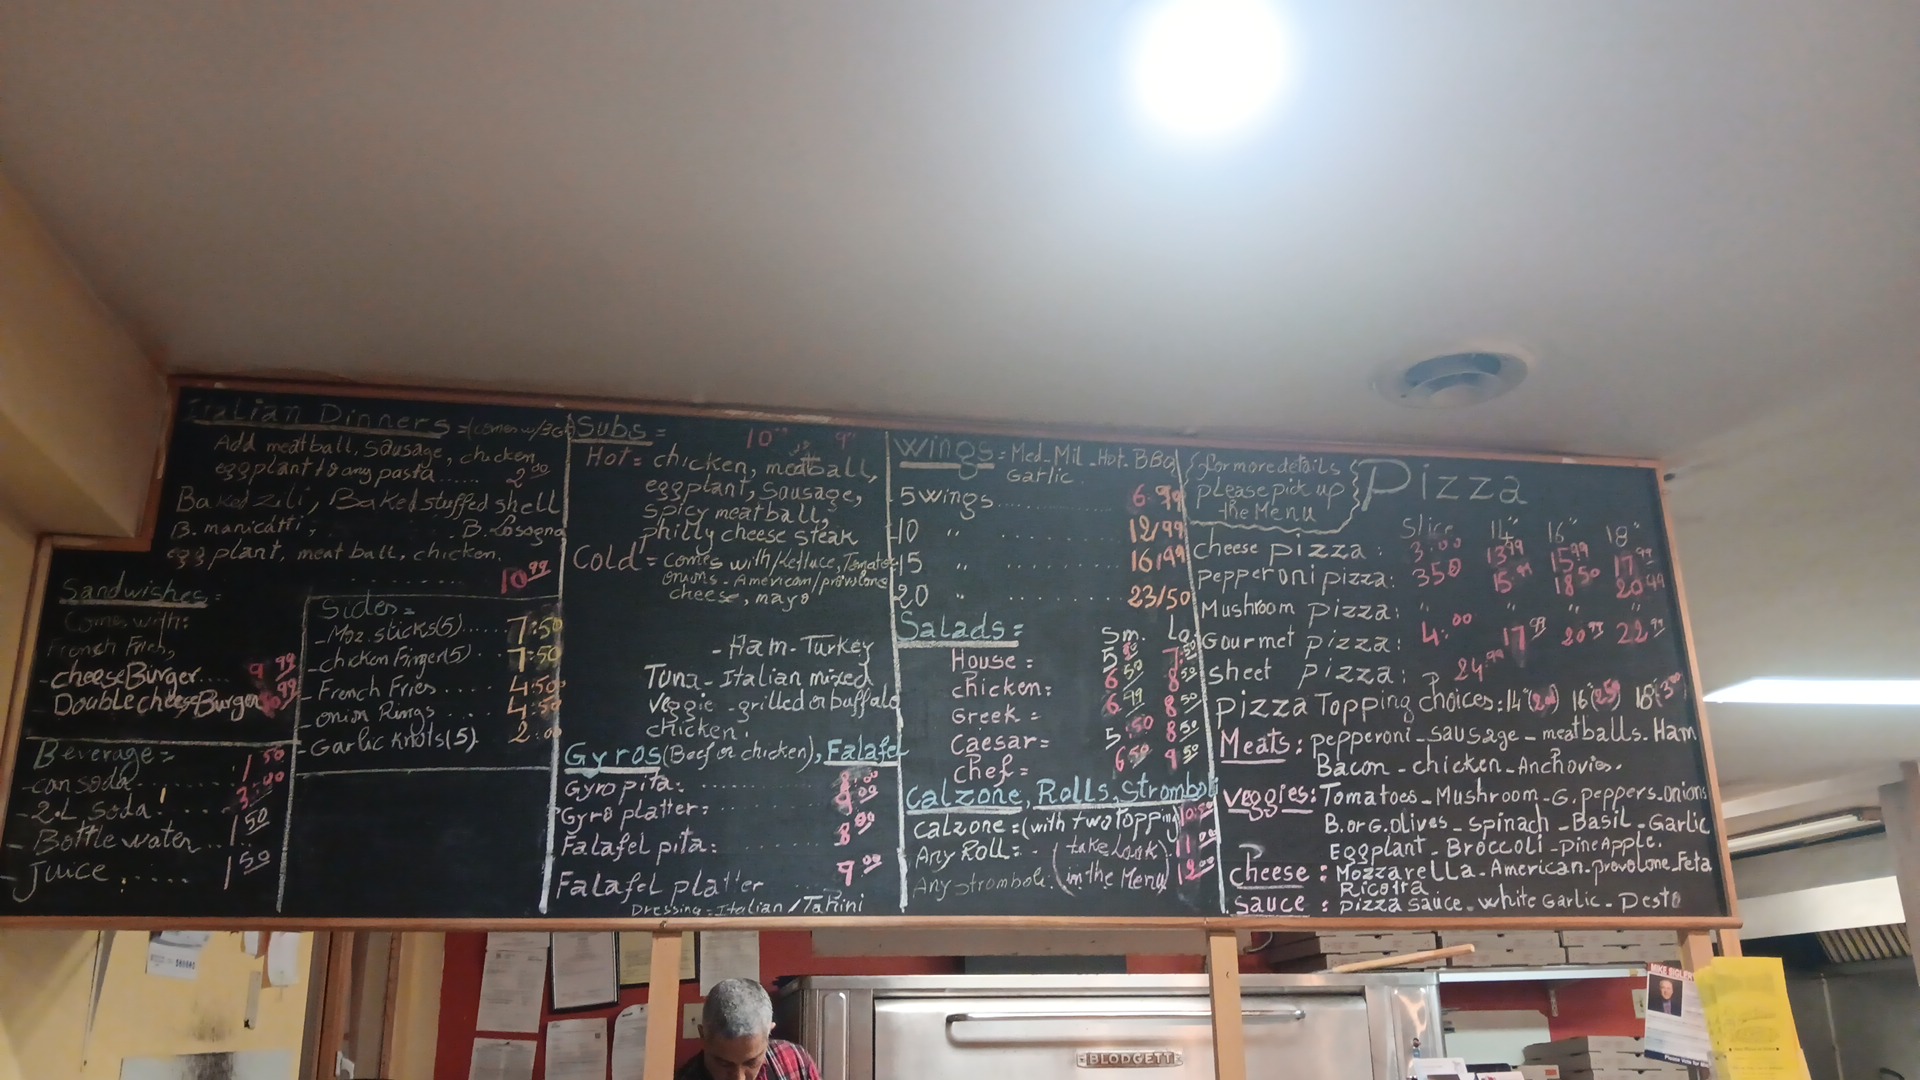 Italian Dinners = (comes w/3G
Add meatball, Sausage, chicken,
eggplant to any pasta ...... 2.00
Baked Ziti, Baked stuffed shell
B. manicatti, B. Lasagna
eggplant, meat ball, chicken.
........ 10.99
Sandwishes =
Comes with:
French Fries,
- cheeseBurger.... 9.99
Double cheeseBurger
Beverage =
- can soda ........ 1.50
- 2.L soda ........ 3.00
- Bottle water ... 1.50
- Juice ...... 1.50
Sides =
- Moz. sticks(5)..... 7:50
- chicken Finger(5) .. 7:50
- French Fries .... 4:50
- onion Rings .... 4:50
- Garlic knots(5). 2:00
Subs =
Hot = chicken, meatball,
eggplant, Sausage,
spicy meatball,
philly cheese steak
Cold = comes with/Lettuce, Tomatoe
onions - American/provolone
cheese, mayo
- Ham - Turkey
Tuna - Italian mixed
Veggie - grilled or buffalo
chicken.
Gyros (Beef or chicken), Falafe
Gyro pita: ........ 8.00
Gyro platter: ........ 9.00
Falafel pita: ........ 8.00
Falafel platter .... 9.00
Dressing = Italian / Tahini
Wings = Med - Mil - Hot - BBQ
Garlic
5 wings ............ 6.99
10 " ............ 12/99
15 " ............ 16/99
20 " ............ 23/50
Salads = Sm. La.
House = 7.50
chicken: 6.50 8.50
Greek = 6.99 8.50
Caesar = 5.50 8.50
chef = 6.50 9.50
Calzone, Rolls, Stromboli
calzone = (with two topping
Any Roll = (take look) 11.00
Any stromboli. (in the Menu) 12.00
for more details
please pick up
the Menu
Pizza
Slice 14" 16" 18"
cheese pizza : 3:00 13.99 15.99 17.99
pepperoni pizza: 3.50 15.99 18.50 20.49
Mushroom pizza: " " " "
Gourmet pizza: 4:00 17.99 20.99 22.99
sheet pizza: 24.99
pizza Topping choices: 14" 16" 18"
Meats : pepperoni - sausage - meatballs - Ham
Bacon - chicken - Anchovies.
Veggies: Tomatoes - Mushroom - G. peppers - onions
B. or G. olives - spinach - Basil - Garlic
Eggplant - Broccoli - pineApple.
cheese : Mozzarella - American - provolone - Feta
Ricotta
sauce : pizza sauce - white Garlic - Pesto
BLODGETT
MIKE SIGLER